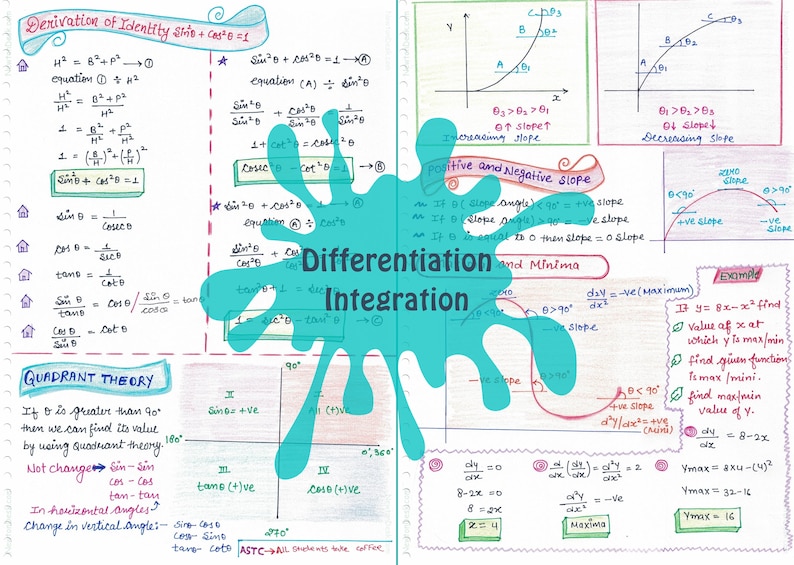 Derivation of Identity Sin²θ + Cos²θ = 1
H² = B² + P² → ①
equation ① ÷ H²
H²/H² = B² + P²/H²
1 = B²/H² + P²/H²
1 = (B/H)² + (P/H)²
Sin²θ + Cos²θ = 1
Sinθ = 1/cosecθ
Cosθ = 1/secθ
tanθ = 1/cotθ
Sinθ/tanθ = cosθ / Sinθ/cosθ = tanθ
Cosθ/Sinθ = cotθ
Sin²θ + Cos²θ = 1 → Ⓐ
equation (A) ÷ Sin²θ
Sin²θ/Sin²θ + Cos²θ/Sin²θ = 1/Sin²θ
1 + cot²θ = cosec²θ
Cosec²θ - cot²θ = 1 → Ⓑ
Sin²θ + Cos²θ = 1 → Ⓐ
equation Ⓐ ÷ Cos²θ
Sin²θ/Cos²θ + Co
tan²θ + 1 = sec²θ
1 = sec²θ - tan²θ → Ⓒ
QUADRANT THEORY
If θ is greater than 90°
then we can find its value
by using Quadrant theory.
Not change → Sin - Sin
cos - cos
tan - tan
In horizontal angles
Change in vertical angle:-
Sinθ Cosθ
Cosθ- Sinθ
tanθ- Cotθ
90°
II
Sinθ = +ve
I
All (+)ve
180°
0°,360°
III
tanθ (+)ve
IV
Cosθ (+)ve
270°
ASTC → All Students take coffee
Differentiation
Integration
Y
A
B
C
θ1
θ2
θ3
x
θ3 > θ2 > θ1
θ↑ Slope↑
Increasing slope
A
B
C
θ1
θ2
θ3
θ1 > θ2 > θ3
θ↓ Slope↓
Decreasing slope
Positive and Negative Slope
If θ (Slope angle) < 90° = +ve slope
If θ (Slope angle) > 90° = -ve slope
If θ is equal to 0 then slope = 0 slope
zero slope
θ<90°
θ>90°
+ve slope
-ve slope
and Minima
zero
θ < 90°
θ > 90°
-ve slope
d²y/dx² = -ve (Maximum)
-ve slope
θ > 90°
θ < 90°
+ve slope
d²y/dx² = +ve
(Mini)
Example
If y = 8x - x² find
value of x at
which y is max/min
find given function
is max / mini.
find max/min
value of y.
dy/dx = 8-2x
dy/dx = 0
8-2x = 0
8 = 2x
x = 4
d/dx (dy/dx) = d²y/dx² = 2
d²y/dx² = -ve
Maxima
Ymax = 8×4-(4)²
Ymax = 32-16
Ymax = 16